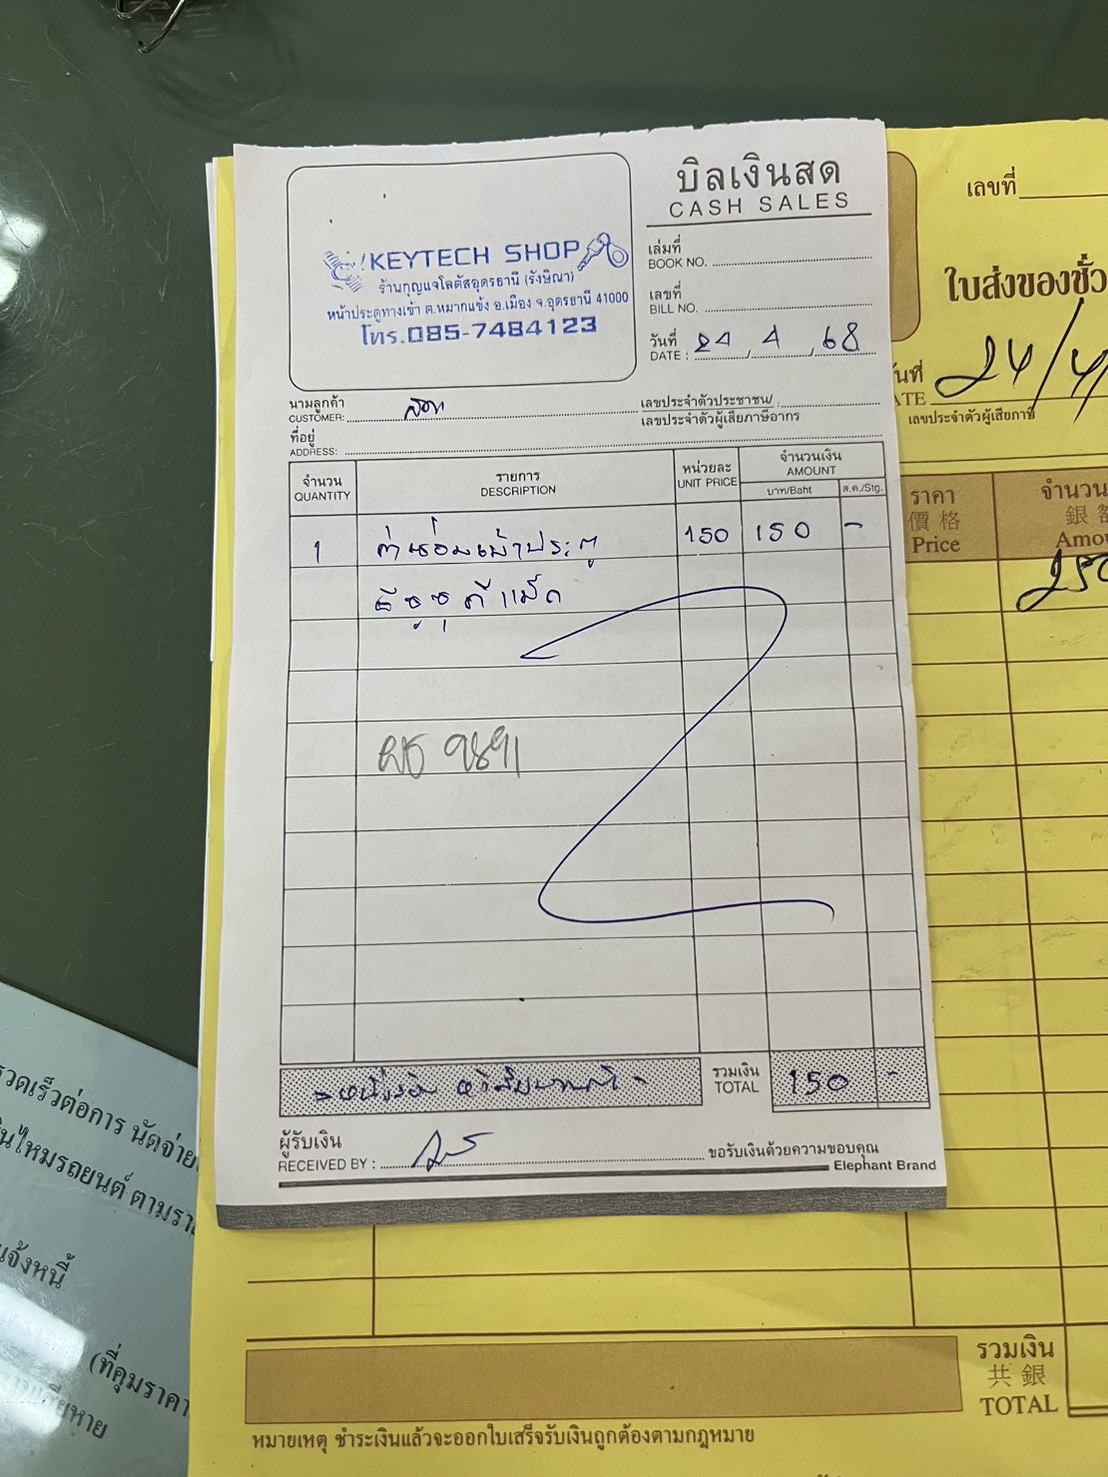 บิลเงินสด
CASH SALES
KEYTECH SHOP
ร้านกุญแจโลตัสอุดรธานี (รังษิณา)
หน้าประตูทางเข้า ต.หมากแข้ง อ.เมือง จ.อุดรธานี 41000
โทร.085-7484123
เล่มที่
BOOK NO.
เลขที่
BILL NO.
วันที่
DATE : 24 4 68
นามลูกค้า
CUSTOMER:
เลขประจำตัวประชาชน/ :
เลขประจำตัวผู้เสียภาษีอากร
ที่อยู่
ADDRESS:
จำนวน
QUANTITY
รายการ
DESCRIPTION
หน่วยละ
UNIT PRICE
จำนวนเงิน
AMOUNT
บาท/Baht
ส.ต./Stg.
1 ค่าซ่อมเบ้าประตู 150 150 -
อีซูซุดีแม็ก
ผธ 9891
- หนึ่งร้อย ห้าสิบบาท -
รวมเงิน
TOTAL
150 -
ผู้รับเงิน
RECEIVED BY :
ขอรับเงินด้วยความขอบคุณ
Elephant Brand
เลขที่
ใบส่งของชั่ว
วันที่ 24/4/
ATE
เลขประจำตัวผู้เสียภาษี
ราคา
價格
Price
จำนวน
銀
Amou
250
รวมเงิน
共銀
TOTAL
หมายเหตุ ชำระเงินแล้วจะออกใบเสร็จรับเงินถูกต้องตามกฎหมาย
รวดเร็วต่อการ นัดจ่าย
นไหมรถยนต์ ตามรา
แจ้งหนี้
(ที่คุมราคา
หาย